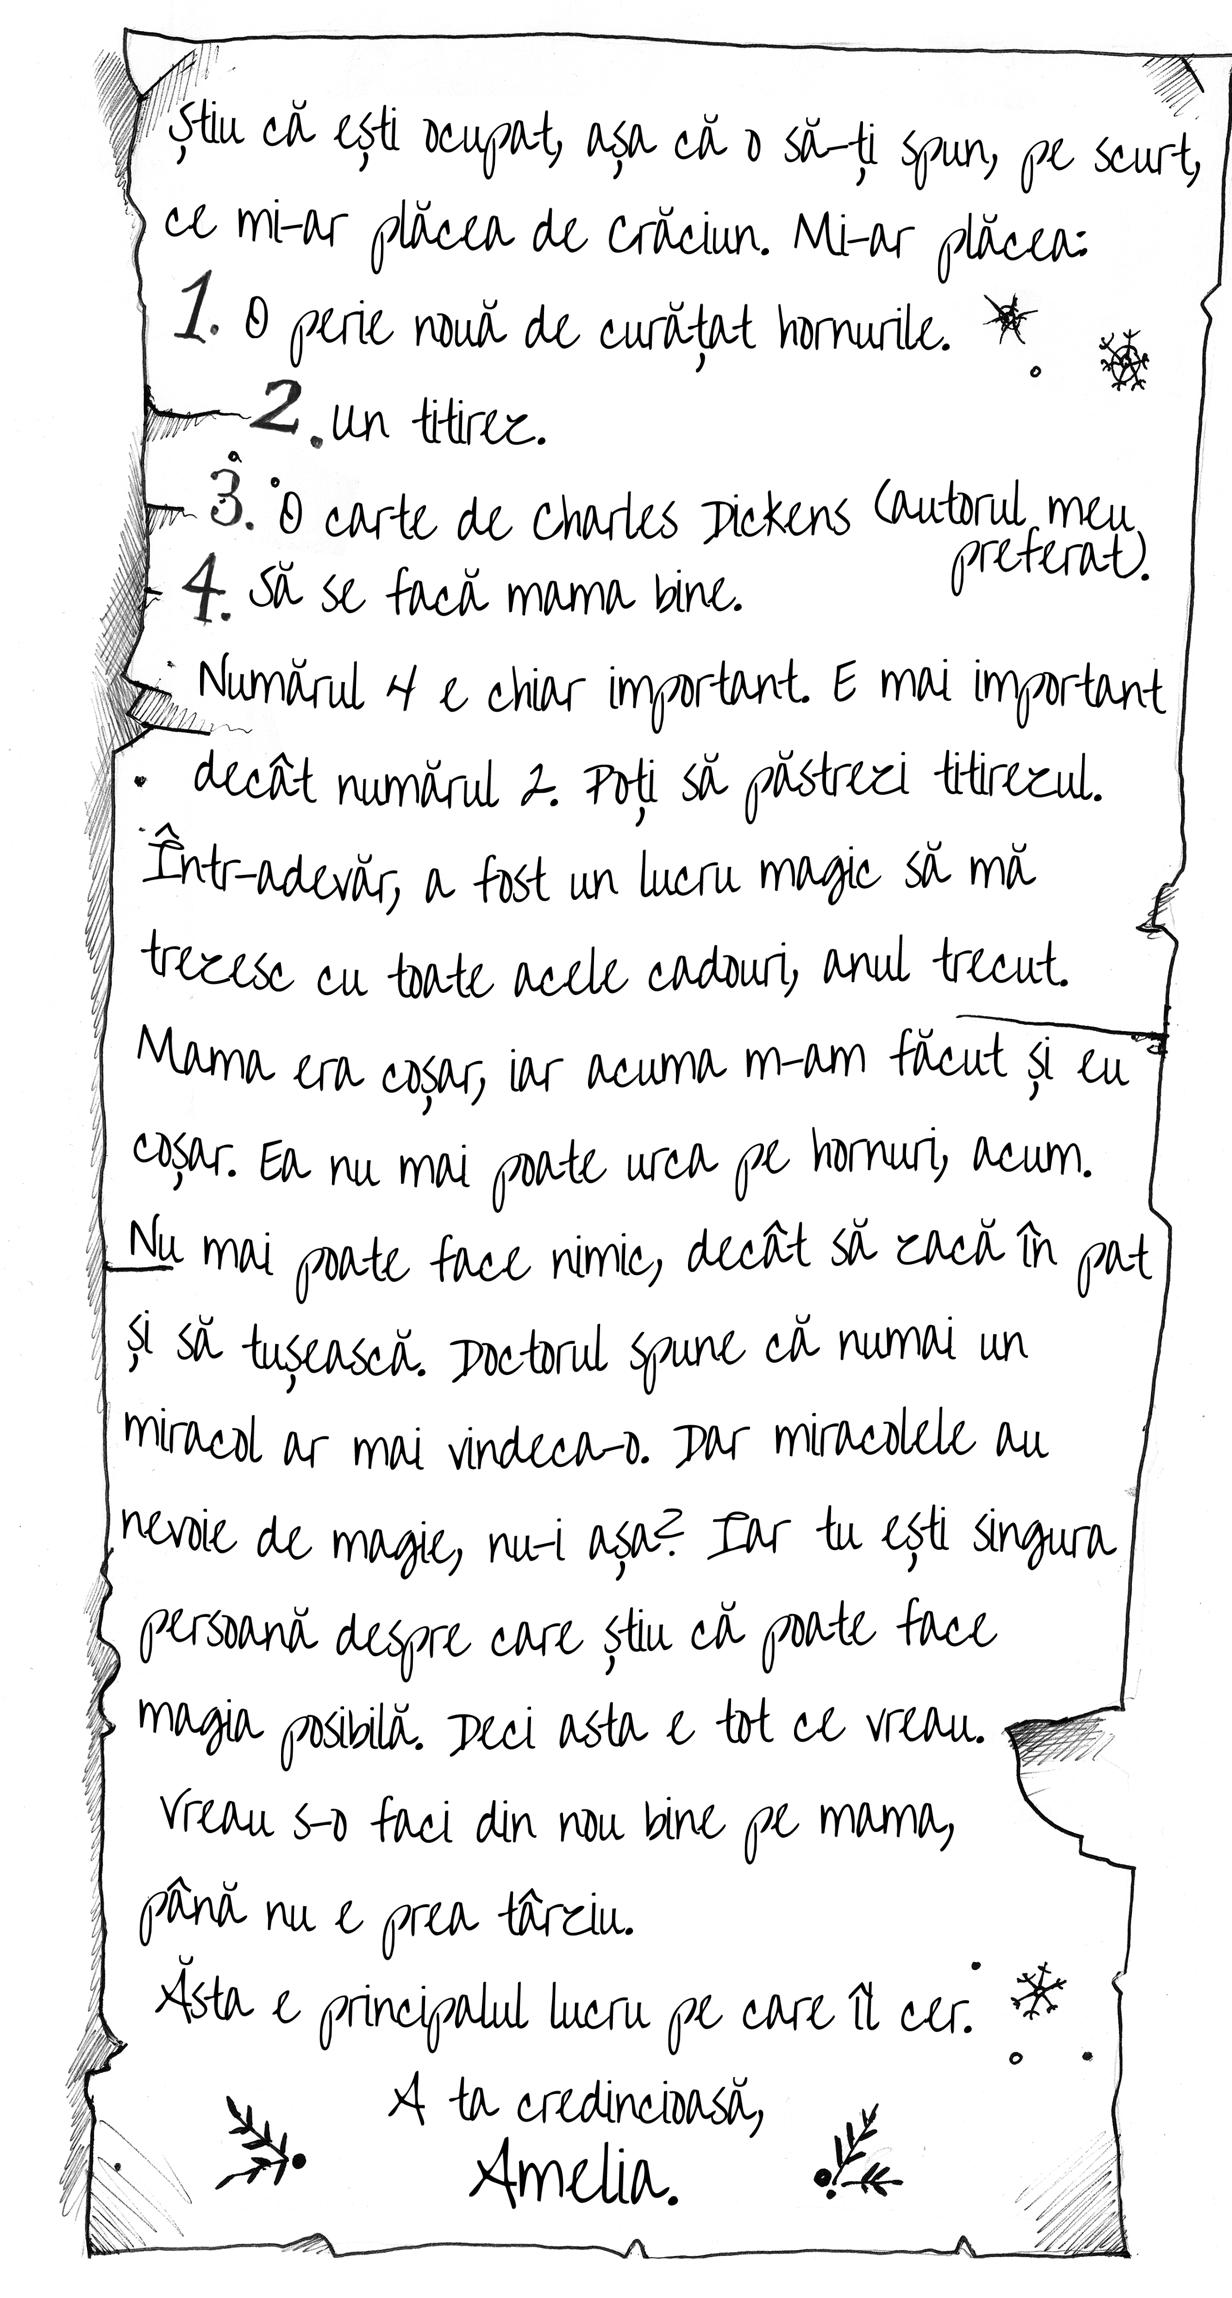 Știu că ești ocupat, așa că o să-ți spun, pe scurt,
ce mi-ar plăcea de Crăciun. Mi-ar plăcea:
1. O perie nouă de curățat hornurile.
2. Un titirez.
3. O carte de Charles Dickens (autorul meu
preferat).
4. Să se facă mama bine.
Numărul 4 e chiar important. E mai important
decât numărul 2. Poți să păstrezi titirezul.
Într-adevăr, a fost un lucru magic să mă
trezesc cu toate acele cadouri, anul trecut.
Mama era coșar, iar acuma m-am făcut și eu
coșar. Ea nu mai poate urca pe hornuri, acum.
Nu mai poate face nimic, decât să zacă în pat
și să tușească. Doctorul spune că numai un
miracol ar mai vindeca-o. Dar miracolele au
nevoie de magie, nu-i așa? Iar tu ești singura
persoană despre care știu că poate face
magia posibilă. Deci asta e tot ce vreau.
Vreau s-o faci din nou bine pe mama,
până nu e prea târziu.
Ăsta e principalul lucru pe care îl cer.
A ta credincioasă,
Amelia.